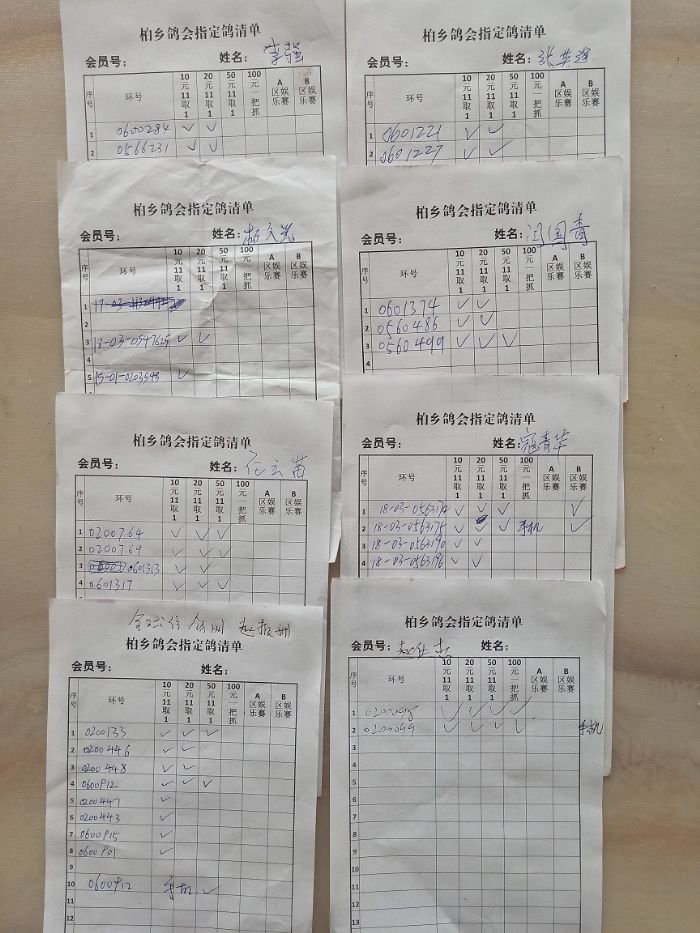 柏乡鸽会指定鸽清单
会员号： 姓名：李强
序号 环号 10元11取1 20元11取1 50元11取1 100元一把抓 A区娱乐赛 B区娱乐赛
1 0600284 ✓ ✓
2 0566231 ✓ ✓
柏乡鸽会指定鸽清单
会员号： 姓名：张英强
序号 环号 10元11取1 20元11取1 50元11取1 100元一把抓 A区娱乐赛 B区娱乐赛
1 0601221 ✓ ✓
2 0601227 ✓ ✓
柏乡鸽会指定鸽清单
会员号： 姓名：
序号 环号 10元11取1 20元11取1 50元11取1 100元一把抓 A区娱乐赛 B区娱乐赛
1 17-03-
2
3 18-03-0547625 ✓ ✓
4
5 15-01-0203598 ✓
柏乡鸽会指定鸽清单
会员号： 姓名：闫国青
序号 环号 10元11取1 20元11取1 50元11取1 100元一把抓 A区娱乐赛 B区娱乐赛
1 0601374 ✓ ✓
2 0560486 ✓ ✓
3 0560499 ✓ ✓ ✓
4
柏乡鸽会指定鸽清单
会员号： 姓名：任云苗
序号 环号 10元11取1 20元11取1 50元11取1 100元一把抓 A区娱乐赛 B区娱乐赛
1 0200764 ✓ ✓ ✓
2 0200769 ✓ ✓ ✓
3 0601313 ✓ ✓
4 0601317 ✓ ✓ ✓
柏乡鸽会指定鸽清单
会员号： 姓名：寇青华
序号 环号 10元11取1 20元11取1 50元11取1 100元一把抓 A区娱乐赛 B区娱乐赛
1 18-03-0563174 ✓ ✓ ✓ ✓
2 18-03-0563175 ✓ ✓ 手机 ✓
3 18-03-0563190 ✓ ✓
4 18-03-0563196 ✓ ✓
柏乡鸽会指定鸽清单
会员号： 姓名：
序号 环号 10元11取1 20元11取1 50元11取1 100元一把抓 A区娱乐赛 B区娱乐赛
1 0200133 ✓ ✓ ✓
2 0200446 ✓ ✓
3 0200448 ✓ ✓
4 0600912 ✓ ✓ ✓
5 0200447 ✓
6 0200443 ✓
7 0600915 ✓
8 0600901 ✓
9
10 0600912 手机 ✓
11
12
柏乡鸽会指定鸽清单
会员号： 姓名：
序号 环号 10元11取1 20元11取1 50元11取1 100元一把抓 A区娱乐赛 B区娱乐赛
1 0200098 ✓ ✓ ✓ ✓
2 0200099 ✓ ✓ ✓ ✓ 手机
3
4
5
6
7
8
9
10
11
12
13